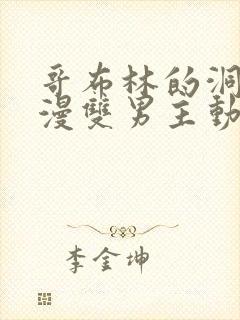 哥布林的洞
漫雙男主動
李金坤